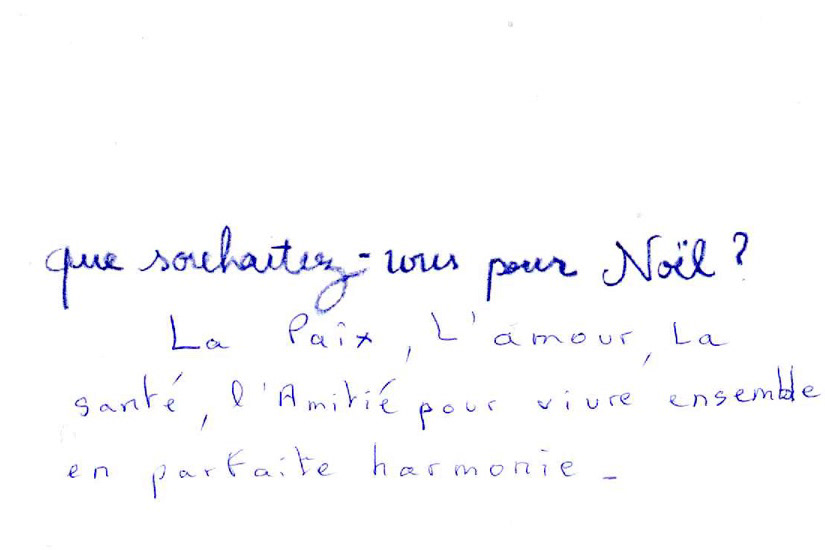 que souhaitez-vous pour Noël ?
La Paix, L'amour, La
santé, l'Amitié pour vivre ensemble
en parfaite harmonie _